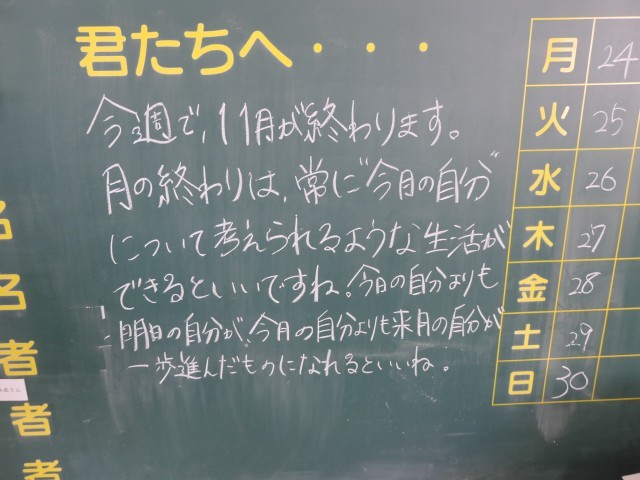 君たちへ・・・
今週で、11月が終わります。
月の終わりは、常に"今月の自分"
について考えられるような生活が
できるといいですね。今日の自分よりも
明日の自分が、今月の自分よりも来月の自分が
一歩進んだものになれるといいね。
月 24
火 25
水 26
木 27
金 28
土 29
日 30
名
名
者
者
者